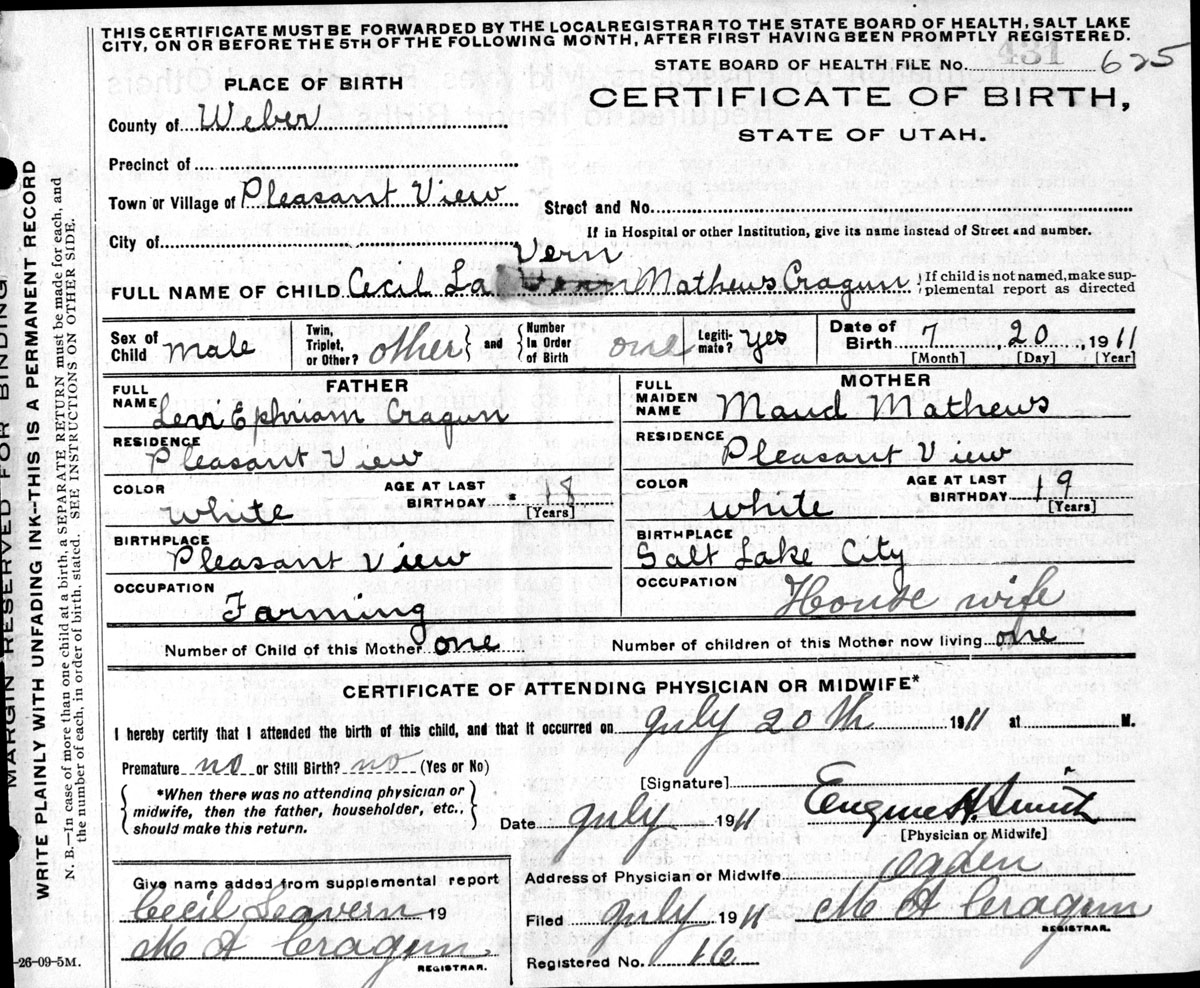 THIS CERTIFICATE MUST BE FORWARDED BY THE LOCAL REGISTRAR TO THE STATE BOARD OF HEALTH, SALT LAKE
CITY, ON OR BEFORE THE 5TH OF THE FOLLOWING MONTH, AFTER FIRST HAVING BEEN PROMPTLY REGISTERED.
431
STATE BOARD OF HEALTH FILE NO. 625
CERTIFICATE OF BIRTH,
STATE OF UTAH.
PLACE OF BIRTH
County of Weber
Precinct of
Town or Village of Pleasant View
Street and No.
City of
If in Hospital or other Institution, give its name instead of Street and number.
Vern
FULL NAME OF CHILD Cecil La Vern Mathews Cragun { If child is not named, make sup-
plemental report as directed
Sex of Child male
Twin, Triplet, or Other? other } and { Number In Order of Birth one
Legiti-mate? Yes
Date of Birth 7, 20, 1911
[Month] [Day] [Year]
FATHER
FULL NAME Levi Ephriam Cragun
RESIDENCE Pleasant View
COLOR white
AGE AT LAST BIRTHDAY 18
[Years]
BIRTHPLACE Pleasant View
OCCUPATION Farming
MOTHER
FULL MAIDEN NAME Maud Mathews
RESIDENCE Pleasant View
COLOR white
AGE AT LAST BIRTHDAY 19
[Years]
BIRTHPLACE Salt Lake City
OCCUPATION House wife
Number of Child of this Mother one Number of children of this Mother now living one
CERTIFICATE OF ATTENDING PHYSICIAN OR MIDWIFE*
I hereby certify that I attended the birth of this child, and that it occurred on July 20th 1911 at M.
Premature no or Still Birth? no (Yes or No)
*When there was no attending physician or
midwife, then the father, householder, etc.,
should make this return.
[Signature] Eugene H. Smith
[Physician or Midwife]
Date July 1911
Address of Physician or Midwife Ogden
Give name added from supplemental report
Cecil Leavern 19
M A Cragun
REGISTRAR.
Filed July 1911 M A Cragun
REGISTRAR.
Registered No. 16
-26-09-5M.
MARGIN RESERVED FOR BINDING
WRITE PLAINLY WITH UNFADING INK--THIS IS A PERMANENT RECORD
N. B.—In case of more than one child at a birth, a SEPARATE RETURN must be made for each, and
the number of each, in order of birth, stated. SEE INSTRUCTIONS ON OTHER SIDE.